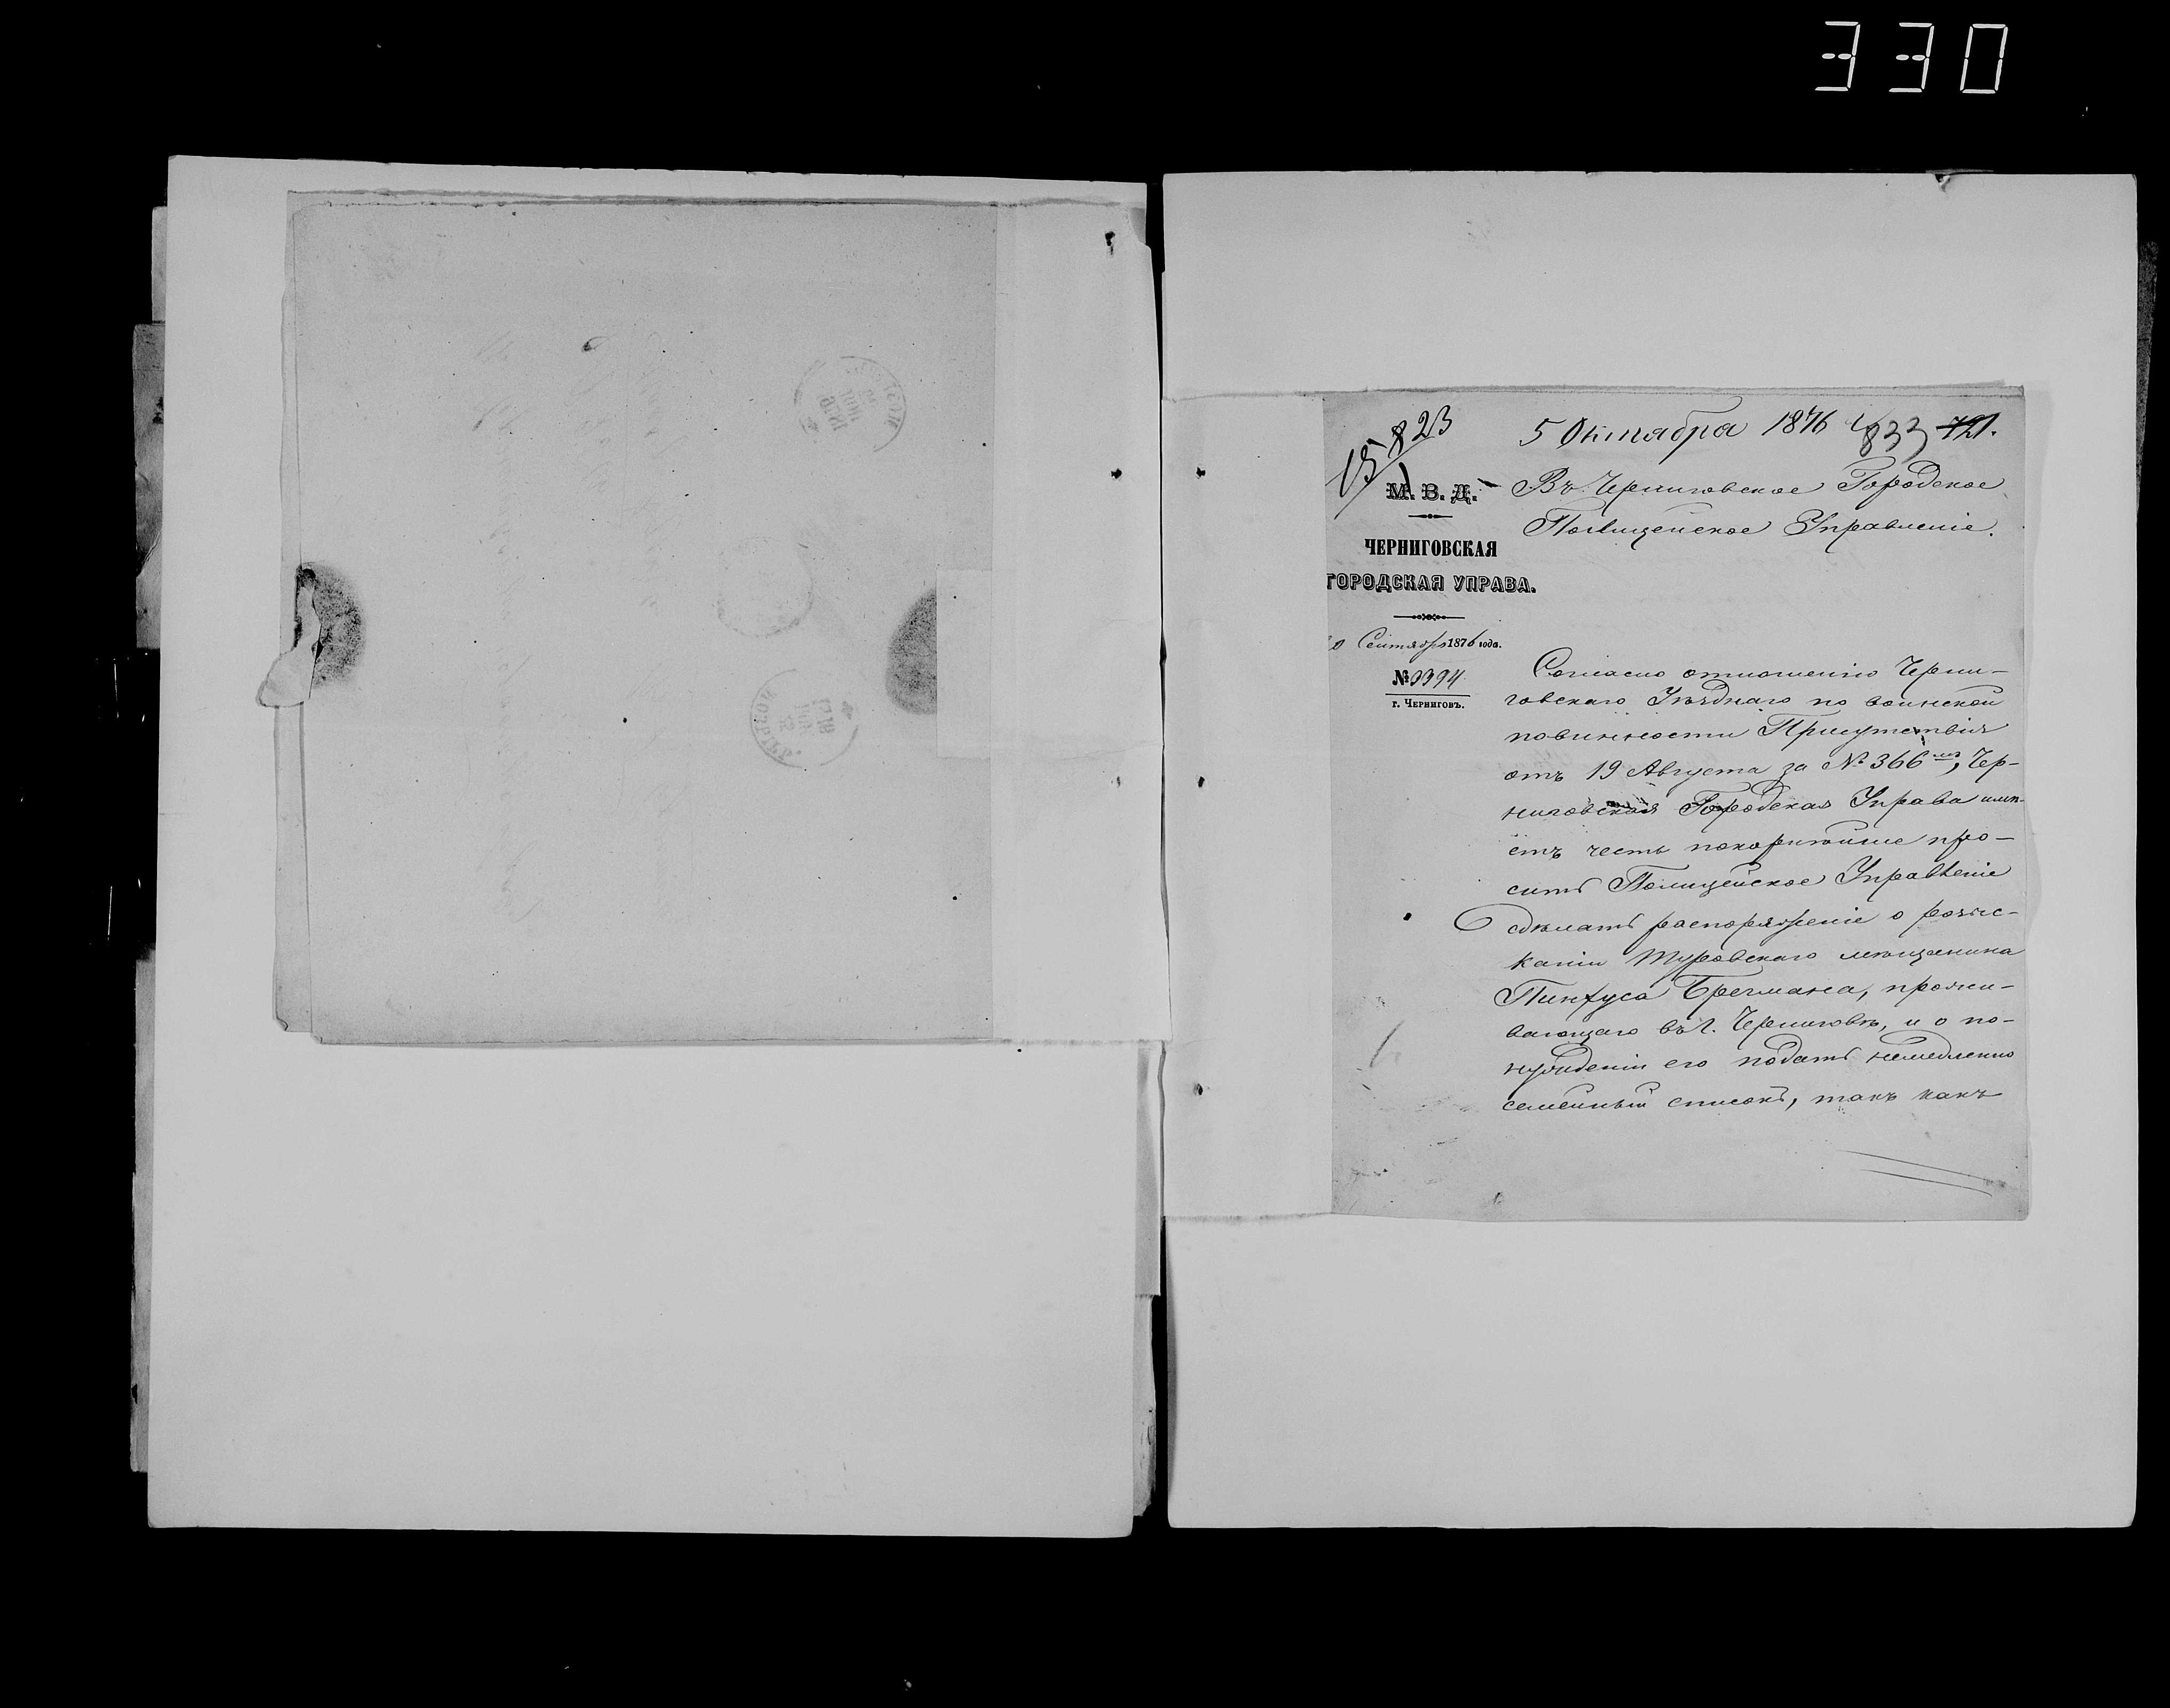 330
823
5 Октября 1876
833 721.
М. В. Д.
ЧЕРНИГОВСКАЯ
ГОРОДСКАЯ УПРАВА.
Сентября 1876 года.
№ 3394
г. Черниговъ.
Въ Черниговское Городское
Полицейское Управленіе.
Согласно отношенію Черни-
говскаго Уѣзднаго по воинской
повинности Присутствія
отъ 19 Августа за № 366мъ, Чер-
ниговская Городская Управа имѣ-
етъ честь покорнѣйше про-
сить Полицейское Управленіе
сдѣлать распоряженіе о розыс-
каніи Туровскаго мѣщанина
Пинхуса Брегмана, прожи-
вающаго въ г. Черниговѣ, и о по-
нужденіи его подать немедленно
семейный списокъ, такъ какъ